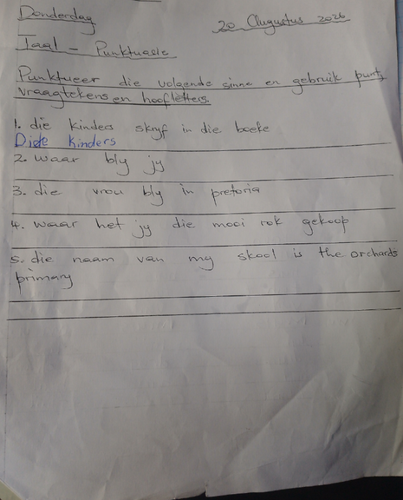 Donderdag 20 Augustus 2026
Taal - Punktuasie
Punktueer die volgende sinne en gebruik punt,
vraagtekens en hoofletters.
1. die kinders skryf in die boeke
Die kinders
2. waar bly jy
3. die vrou bly in pretoria
4. waar het jy die mooi rok gekoop
5. die naam van my skool is the orchards
primary